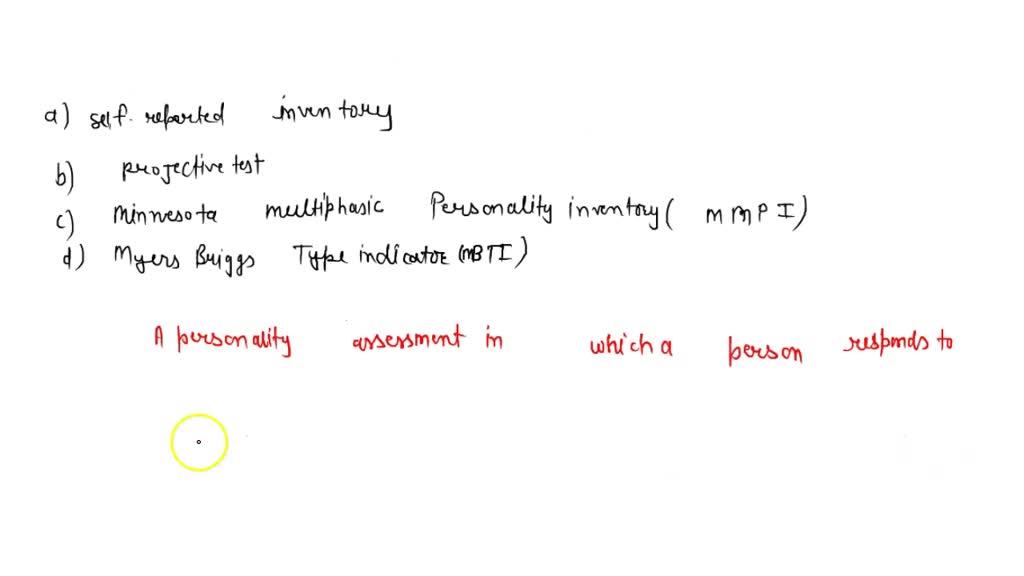 a) self. reported inventory
b) projective test
c) Minnesota multiphasic Personality inventory ( M M P I )
d) Myers Briggs Type indicator (MBTI)
A personality assessment in which a person responds to